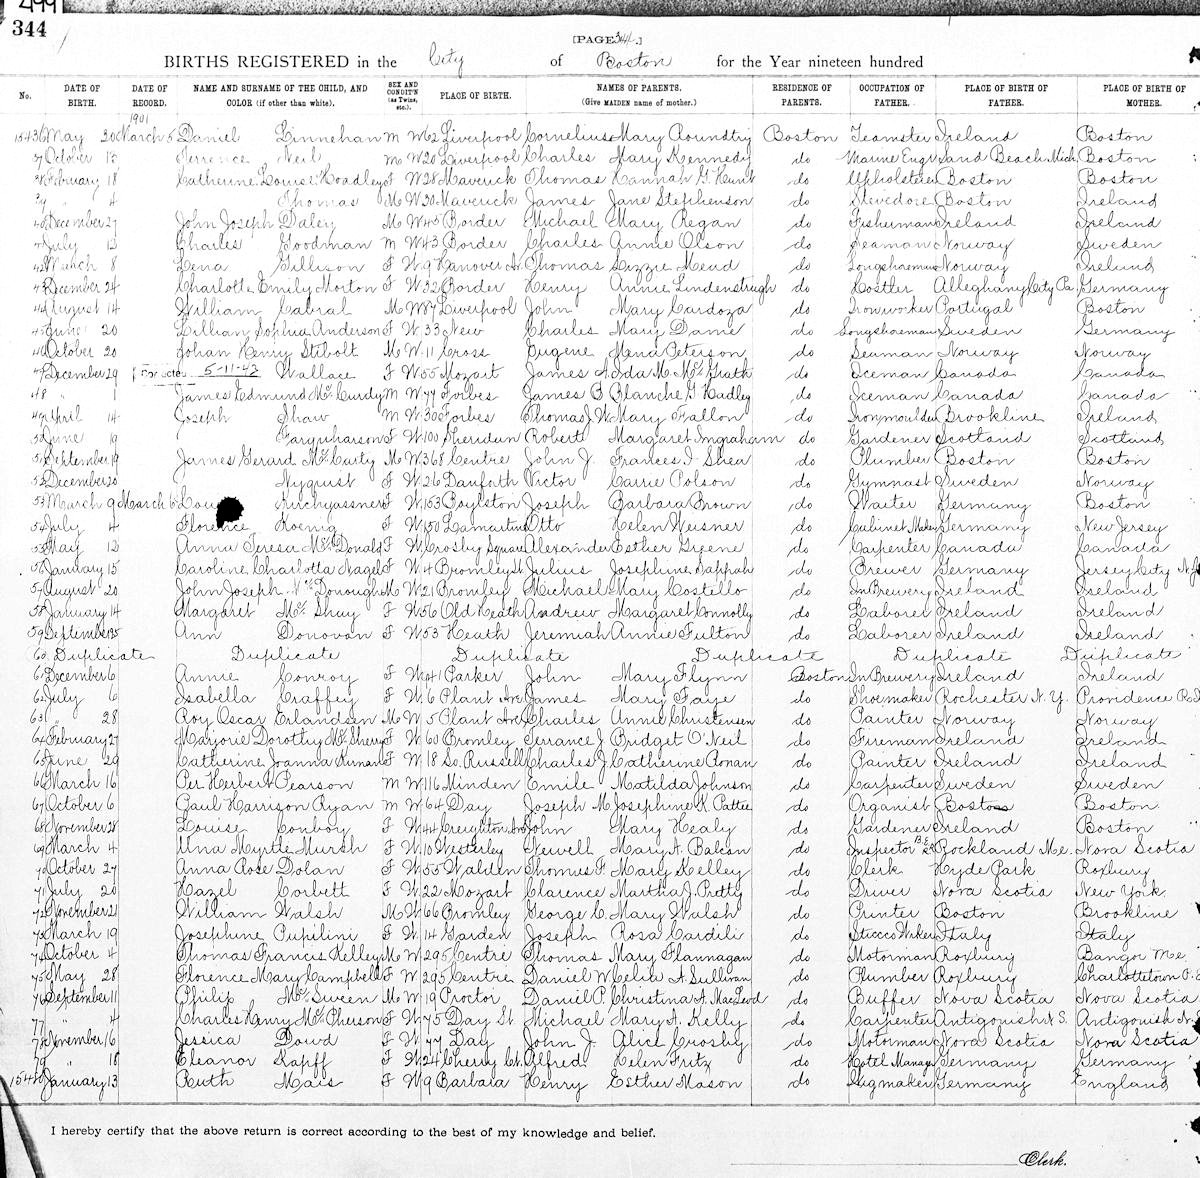 499
344
[PAGE 344.]
BIRTHS REGISTERED in the City of Boston for the Year nineteen hundred
No. DATE OF BIRTH. DATE OF RECORD. NAME AND SURNAME OF THE CHILD, AND COLOR (if other than white). SEX AND CONDIT'N (as Twins, etc.). PLACE OF BIRTH. NAMES OF PARENTS. (Give MAIDEN name of mother.) RESIDENCE OF PARENTS. OCCUPATION OF FATHER. PLACE OF BIRTH OF FATHER. PLACE OF BIRTH OF MOTHER.
1901
15436 May 20 March 5 Daniel Linnehan M W 62 Liverpool Cornelius Mary Roundtrig Boston Teamster Ireland Boston
37 October 13 Terrence Neil M W 20 Liverpool Charles Mary Kennedy do Marine Engr Sand Beach Mich. Boston
38 February 18 Catherine Louise Hoadley F W 28 Maverick Thomas Hannah G. Hunt do Upholsterer Boston Boston
39 " 4 Thomas M W 20 Maverick James Jane Stephenson do Stevedore Boston Ireland
40 December 27 John Joseph Daley M W 45 Border Michael Mary Regan do Fisherman Ireland Ireland
41 July 13 Charles Goodman M W 43 Border Charles Annie Olson do Seaman Norway Sweden
42 March 8 Lena Gillison F W 9 Hanover Av Thomas Lizzie Mead do Longshoreman Norway Ireland
43 December 24 Charlotte Emily Morton F W 32 Border Henry Annie Lindenstrugh do Hostler Alleghany City Pa. Germany
44 August 14 William Cabral M W 87 Liverpool John Mary Cardoza do Ironworker Portugal Boston
45 June 20 Lillian Sophia Anderson F W 33 New Charles Mary Dame do Longshoreman Sweden Germany
46 October 20 Johan Henry Stibolt M W 11 Cross Eugene Mena Peterson do Seaman Norway Norway
47 December 29 Corrected 5-11-43 Wallace F W 55 Mozart James A. Ida M. McGrath do Iceman Canada Canada
48 " 1 James Edmund McCurdy M W 77 Forbes James B. Blanche G. Hadley do Iceman Canada Canada
49 April 14 Joseph Shaw M W 30 Forbes Thomas J. W. Mary Fallon do Ironmoulder Brookline Ireland
50 June 19 Farquharson F W 100 Sheridan Robert Margaret Ingraham do Gardener Scotland Scotland
51 September 19 James Gerard McCarty M W 368 Centre John J. Frances J. Shea do Plumber Boston Boston
52 December 20 Nyquist F W 26 Danforth Victor Carrie Polson do Gymnast Sweden Norway
53 March 9 March 6 Kirchgassner F W 153 Boylston Joseph Barbara Brown do Waiter Germany Boston
54 July 4 Florence Koenig F W 150 Lamartine Otto Helen Weisner do Cabinet Maker Germany New Jersey
55 May 12 Anna Teresa McDonald F W Crosby Square Alexander Esther Greene do Carpenter Canada Canada
56 January 15 Caroline Charlotta Nagel F W 4 Bromley St Julius Josephine Nappah do Brewer Germany Jersey City N.J.
57 August 20 John Joseph McDonough M W 21 Bromley Michael Mary Costello do In Brewery Ireland Ireland
58 January 14 Margaret McShay F W 56 Old Heath Andrew Margaret Connolly do Laborer Ireland Ireland
59 September 25 Ann Donovan F W 53 Heath Jeremiah Annie Fulton do Laborer Ireland Ireland
60 Duplicate Duplicate Duplicate Duplicate Duplicate Duplicate
61 December 6 Annie Conroy F W 41 Parker John Mary Flynn Boston In Brewery Ireland Ireland
62 July 6 Isabella Craffey F W 6 Plant Ave James Mary Faye do Shoemaker Rochester N.Y. Providence R.I.
63 " 28 Roy Oscar Erlandsen M W 5 Plant Ave Charles Annie Christensen do Painter Norway Norway
64 February 27 Marjorie Dorothy McSherry F W 60 Bromley Terrance J. Bridget O'Neil do Fireman Ireland Ireland
65 June 29 Catherine Joanna Kirnan F W 18 So. Russell Charles J. Catherine Ronan do Painter Ireland Ireland
66 March 16 Per Herbert Pearson M W 116 Minden Emile Matilda Johnson do Carpenter Sweden Sweden
67 October 6 Paul Harrison Ryan M W 64 Day Joseph M. Josephine K. Pattee do Organist Boston Boston
68 November 28 Louise Conboy F W 44 Creighton Ave John Mary Healy do Gardener Ireland Boston
69 March 4 Una Myrtle Mursh F W 10 Westerley Newell Mary A. Balcom do Inspector B.E. R.R. Rockland Me. Nova Scotia
70 October 27 Anna Rose Dolan F W 55 Walden Thomas F. Mary Kelley do Clerk Hyde Park Roxbury
71 July 20 Hazel Corbett F W 22 Mozart Clarence Martha J. Pretty do Driver Nova Scotia New York
72 November 21 William Walsh M W 66 Bromley George C. Mary Walsh do Printer Boston Brookline
73 March 19 Josephine Pupilini F W 14 Garden Joseph Rosa Cardili do Stucco Wrker Italy Italy
74 October 4 Thomas Francis Kelley M W 295 Centre Thomas Mary Flannagan do Motorman Roxbury Bangor Me.
75 May 28 Florence Mary Campbell F W 295 Centre Daniel W. Celia A. Sullivan do Plumber Roxbury Charlottetown P.E.
76 September 11 Philip McSween M W 19 Proctor Daniel P. Christina A. MacLeod do Buffer Nova Scotia Nova Scotia
77 " 4 Charles Henry McPherson F W 75 Day St. Michael Mary A. Kelly do Carpenter Antigonish N.S. Antigonish N.S.
78 November 16 Jessica Dowd F W 77 Day John J. Alice Crosby do Motorman Nova Scotia Nova Scotia
79 " 18 Eleanor Kapff F W 24 Cherry Ct. Alfred Helen Fritz do Hotel Manager Germany Germany
15480 January 13 Ruth Mais F W 9 Barbara Henry Esther Mason do Gigmaker Germany England
I hereby certify that the above return is correct according to the best of my knowledge and belief.
Clerk.